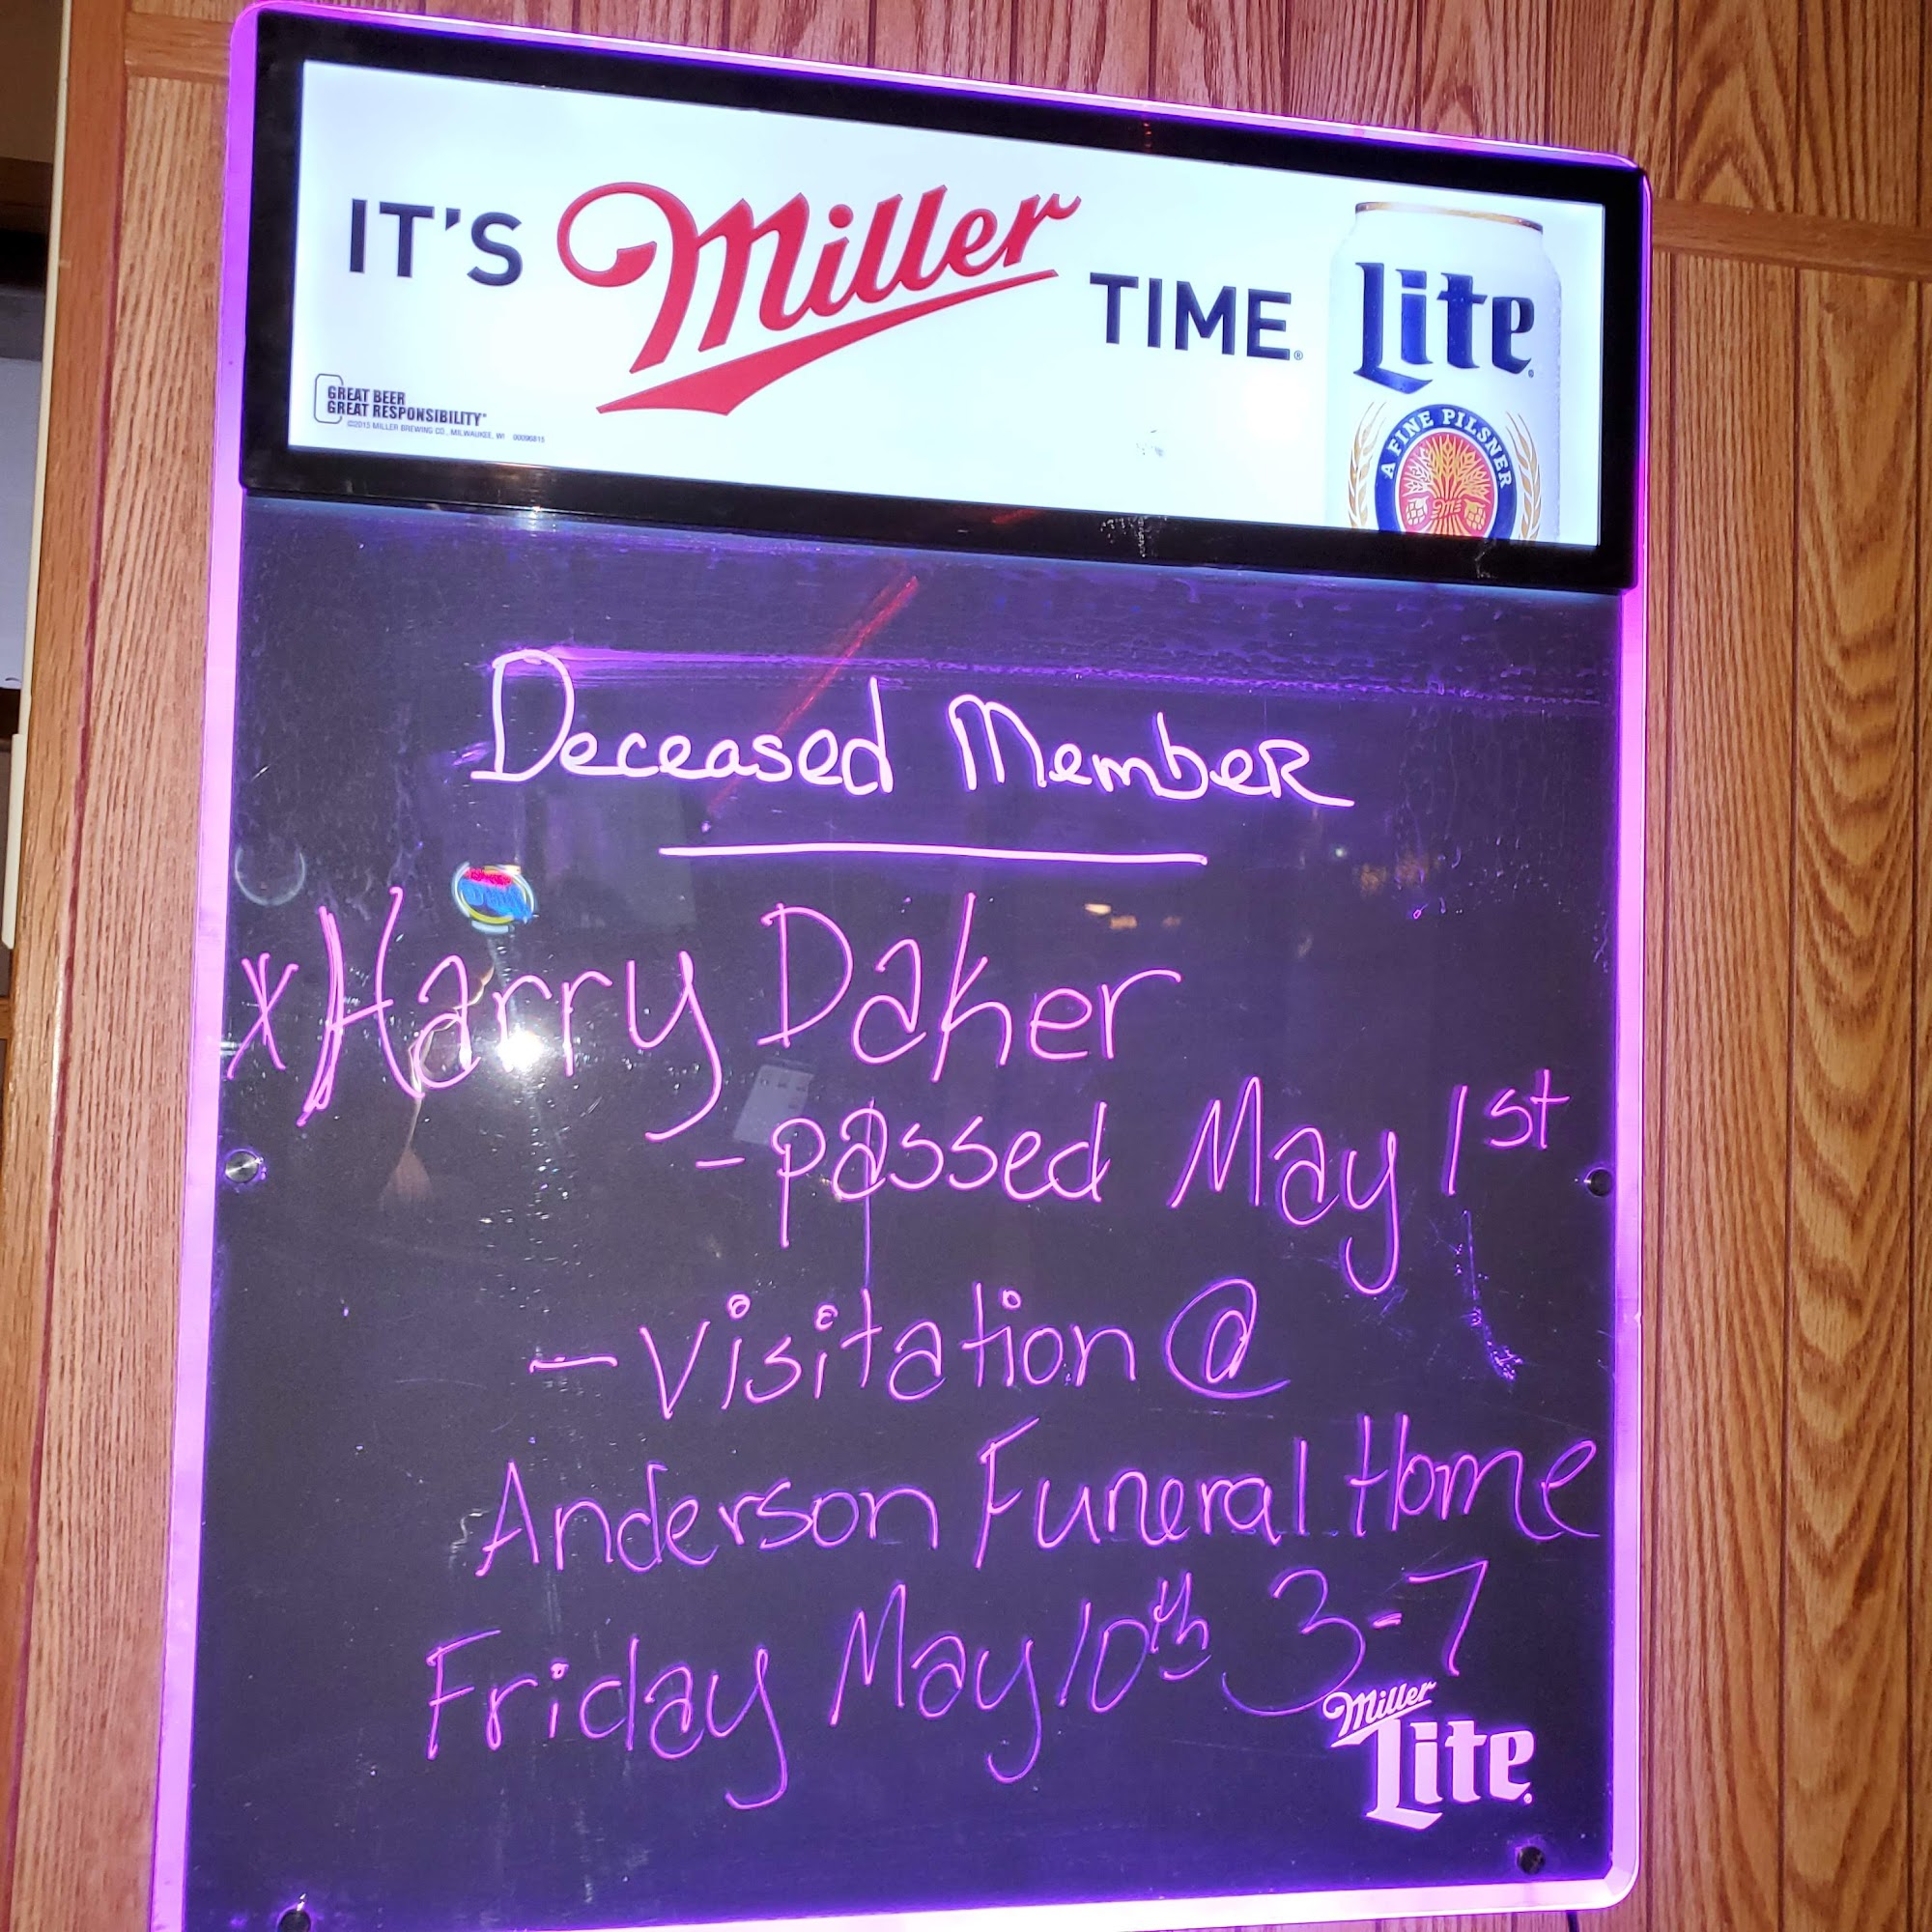 IT'S Miller TIME.®
Lite
A FINE PILSNER
GREAT BEER
GREAT RESPONSIBILITY®
©2015 MILLER BREWING CO., MILWAUKEE, WI
Deceased Member
x Harry Daher
- passed May 1st
- Visitation @
Anderson Funeral Home
Friday May 10th 3-7
Miller
Lite